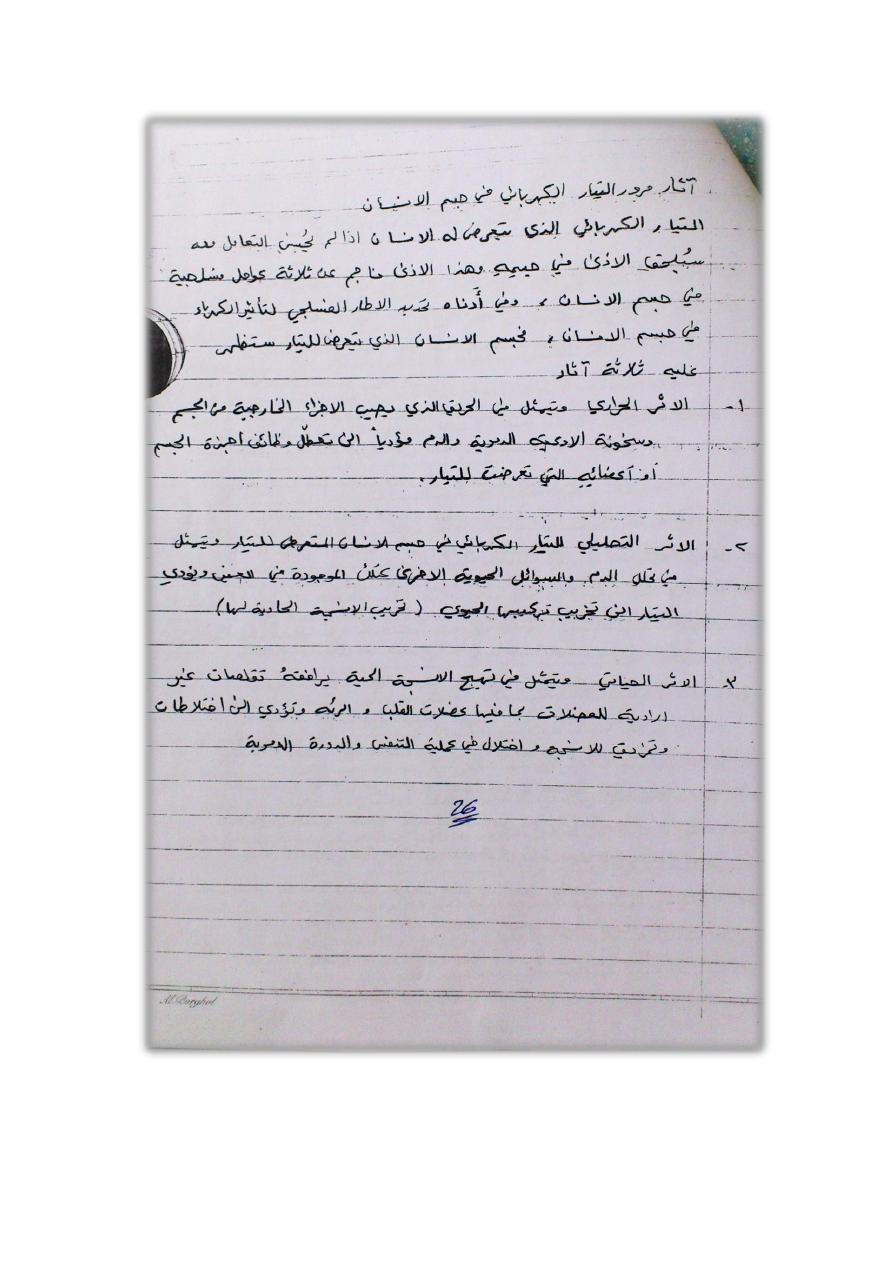 آثار مرور التيار الكهربائي في جسم الانسان
التيار الكهربائي الذي يتعرض له الانسان اذا لم يُحسن التعامل معه
سيُلحق الاذى في جسمه وهذا الاذى ناجم عن ثلاثة عوامل فسلجية
في جسم الانسان ، وفي أدناه تحديد الاطار الفسلجي لتأثير الكهرباء
في جسم الانسان ، فجسم الانسان الذي يتعرض للتيار ستظهر
عليه ثلاثة آثار
١- الاثر الحراري ويتمثل في الحرق الذي يصيب الاجزاء الخارجية من الجسم
وسخونة الاوعية الدموية والدم مؤدياً الى تعطّل وظائف أجهزة الجسم
أو أعضائه التي تعرضت للتيار .
٢- الاثر التحليلي للتيار الكهربائي في جسم الانسان المتعرض للتيار ويتمثل
في تحلل الدم والسوائل الحيوية الاخرى الموجودة في الجسم ويؤدي
التيار الى تخريب تركيبها الحيوي ( تخريب الانسجة الحاوية لها )
٣ الاثر الحياتي ويتمثل في تهيج الانسجة الحية يرافقهُ تقلصات غير
ارادية للعضلات بما فيها عضلات القلب و الرئه وتؤدي الى اختلاطات
وتمزيق للانسجه و اختلال في عملية التنفس والدورة الدموية
26
M.Barghol